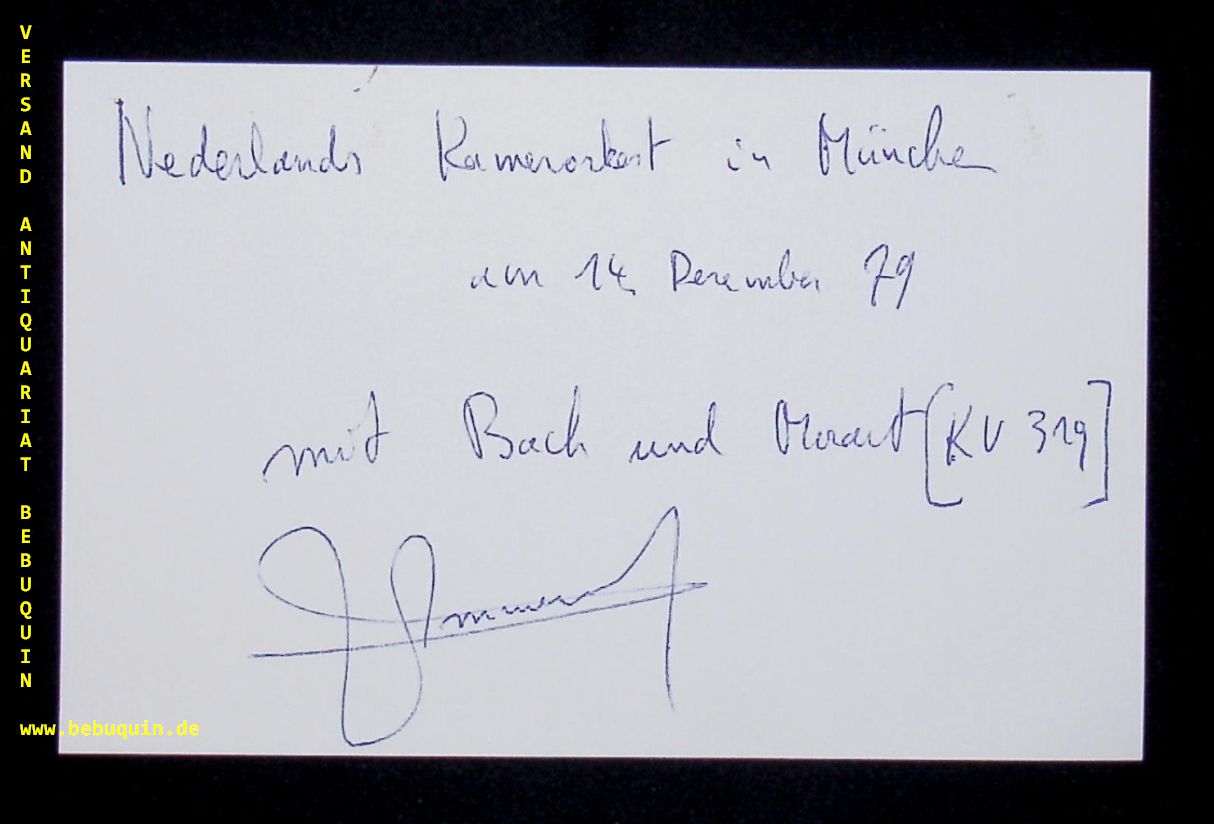 VERSAND ANTIQUARIAT BEBUQUIN
www.bebuquin.de
Nederlands Kamerorkest in München
am 14. Dezember 79
mit Bach und Mozart [KV 319]